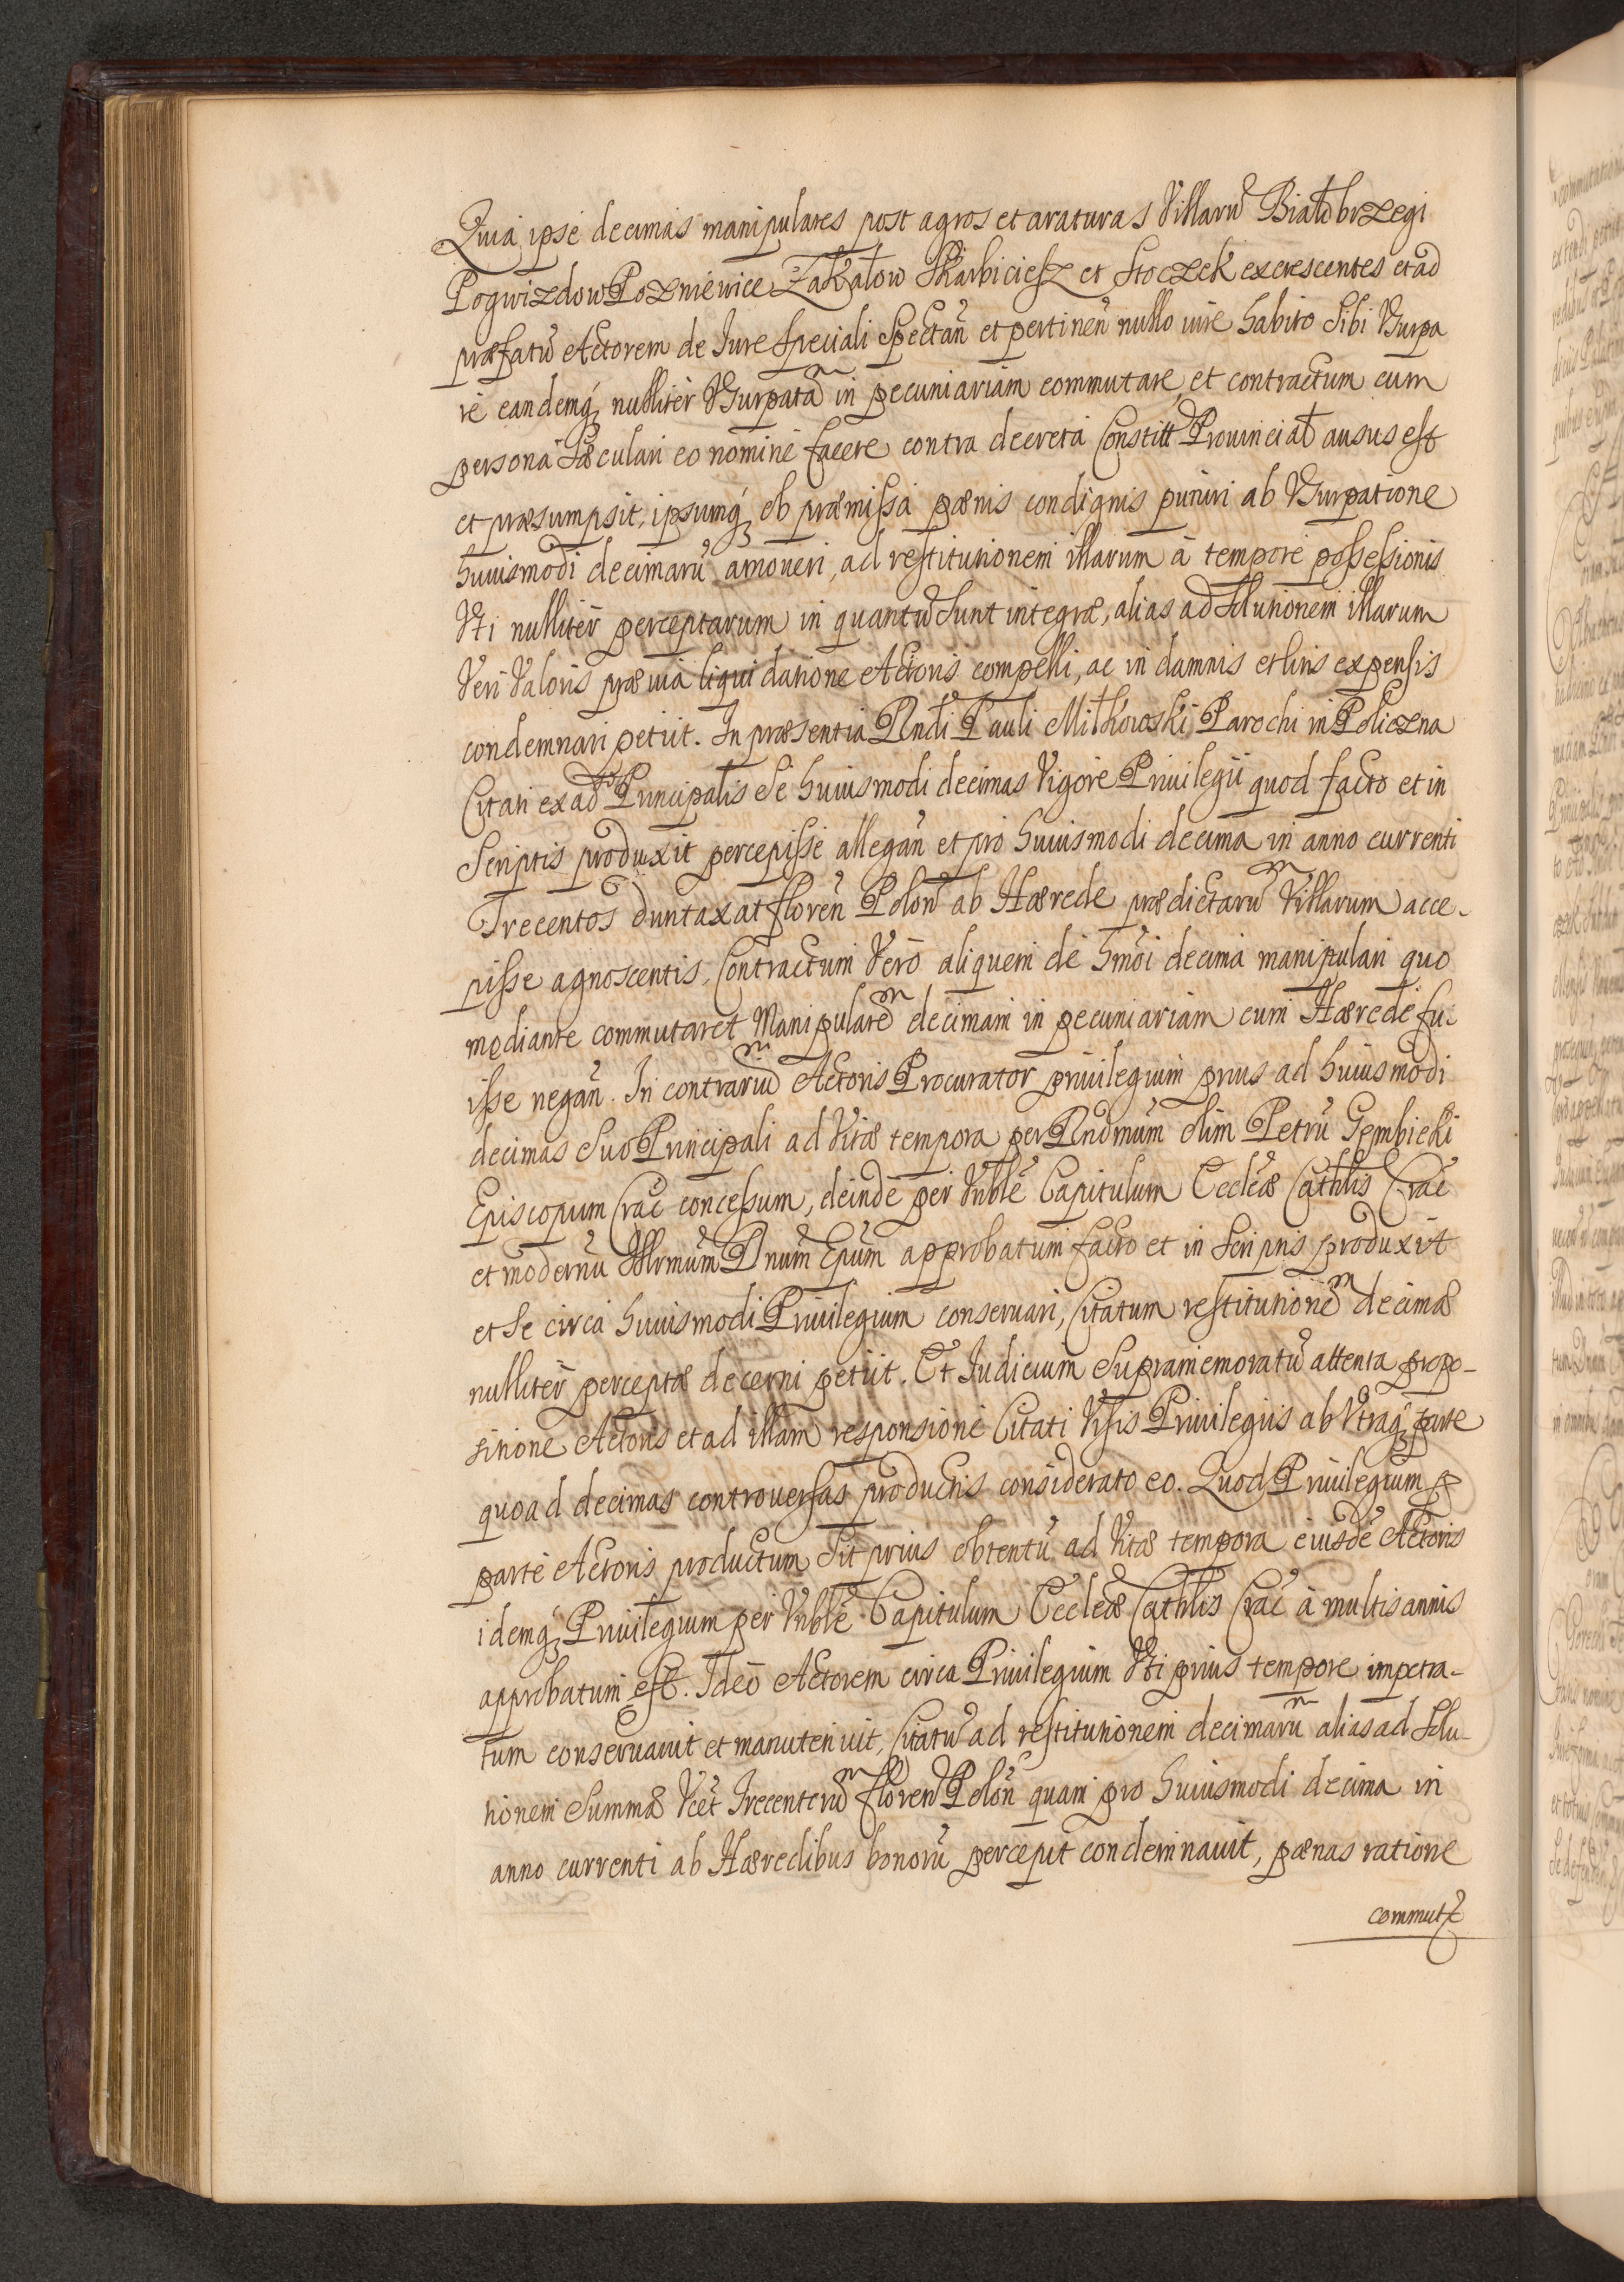 Quia ipse decimas manipulares post agros et araturas Villarũ Białobrzegi
Pogwizdow Pozniewice Zakałow Skarbiciesz et Stoczek excrescentes et ad
præfatũ Actorem de Iure speciali Spectañ et pertineñ nullo iure habito Sibi Vsurpa
re eandemq́ꝫ nulliter Vsurpatã in pecuniariam commutare, et contractum cum
persona Sæculari eo nomine facere contra decreta Constitt Prouinciał ausus est
et præsumpsit, ipsumq́ꝫ ob præmissa pænis condignis puniri ab Vsurpatione
huiusmodi decimarũ amoueri, ad restitutionem illarum à tempore possessionis
Vti nulliter perceptarum in quantũ Sunt integræ, alias ad Solutionem illarum
Veri Valoris præuia liquidatione Actoris compelli, ac in damnis et litis expensis
condemnari petiit. In præsentia Rńdi Pauli Miłkowski Parochi in Policzna
Citati ex adũ Principalis Se huiusmodi decimas Vigore Priuilegii quod facto et in
Scriptis produxit percepisse allegañ et pro huiusmodi decima in anno currenti
Trecentos duntaxat floreñ Poloñ ab Hærede prædictarũ Villarum acce-
pisse agnoscentis, Contractum Verò aliquem de hmõi decima manipulari quo
mediante commutaret Manipularẽ decimam in pecuniariam cum Hærede fu-
isse negañ. In contrariũ Actoris Procurator priuilegium prius ad huiusmodi
decimas Suo Principali ad Vitæ tempora per Rndmũm olim Petrũ Gembicki
Episcopum Crac̃ concessum, deinde per Vnblẽ Capitulum Eccleæ Cathlis Crac̃
et modernũ Illrmũm Dnũm Epũm approbatum facto et in Scriptis produxit
et Se circa huiusmodi Priuilegium conseruari, Citatum restitutionẽ decimæ
nulliter perceptæ decerni petiit. Et Iudicium Supramemoratũ attenta propo-
sitione Actoris et ad illam responsione Citati Visis Priuilegiis ab Vtraq́ꝫ parte
quoad decimas controuersas productis considerato eo. Quod Priuilegium p
parte Actoris productum Sit prius obtentũ ad Vitæ tempora eiusdẽ Actoris
idemq́ꝫ Priuilegium per Vnblẽ Capitulum Eccleæ Cathlis Crac̃ à multis annis
approbatum est. Ideò Actorem circa Priuilegium Vti prius tempore impetra-
tum conseruauit et manutenuit, Citatũ ad restitutionem decimarũ alias ad Solu-
tionem Summæ Vcet̃ Trecentorũ floreñ Poloñ quam pro huiusmodi decima in
anno currenti ab Hæredibus bonorũ percepit condemnauit, pænas ratione
commut̃